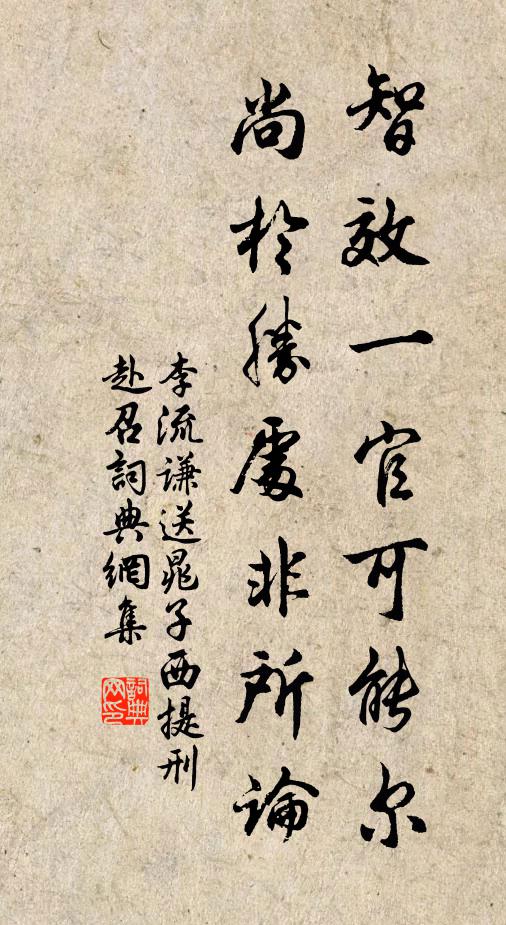 智效一官可能尔
尚於勝處非所論
李流謙送晁子西提刑
赴召詞典網集
詞典
网印